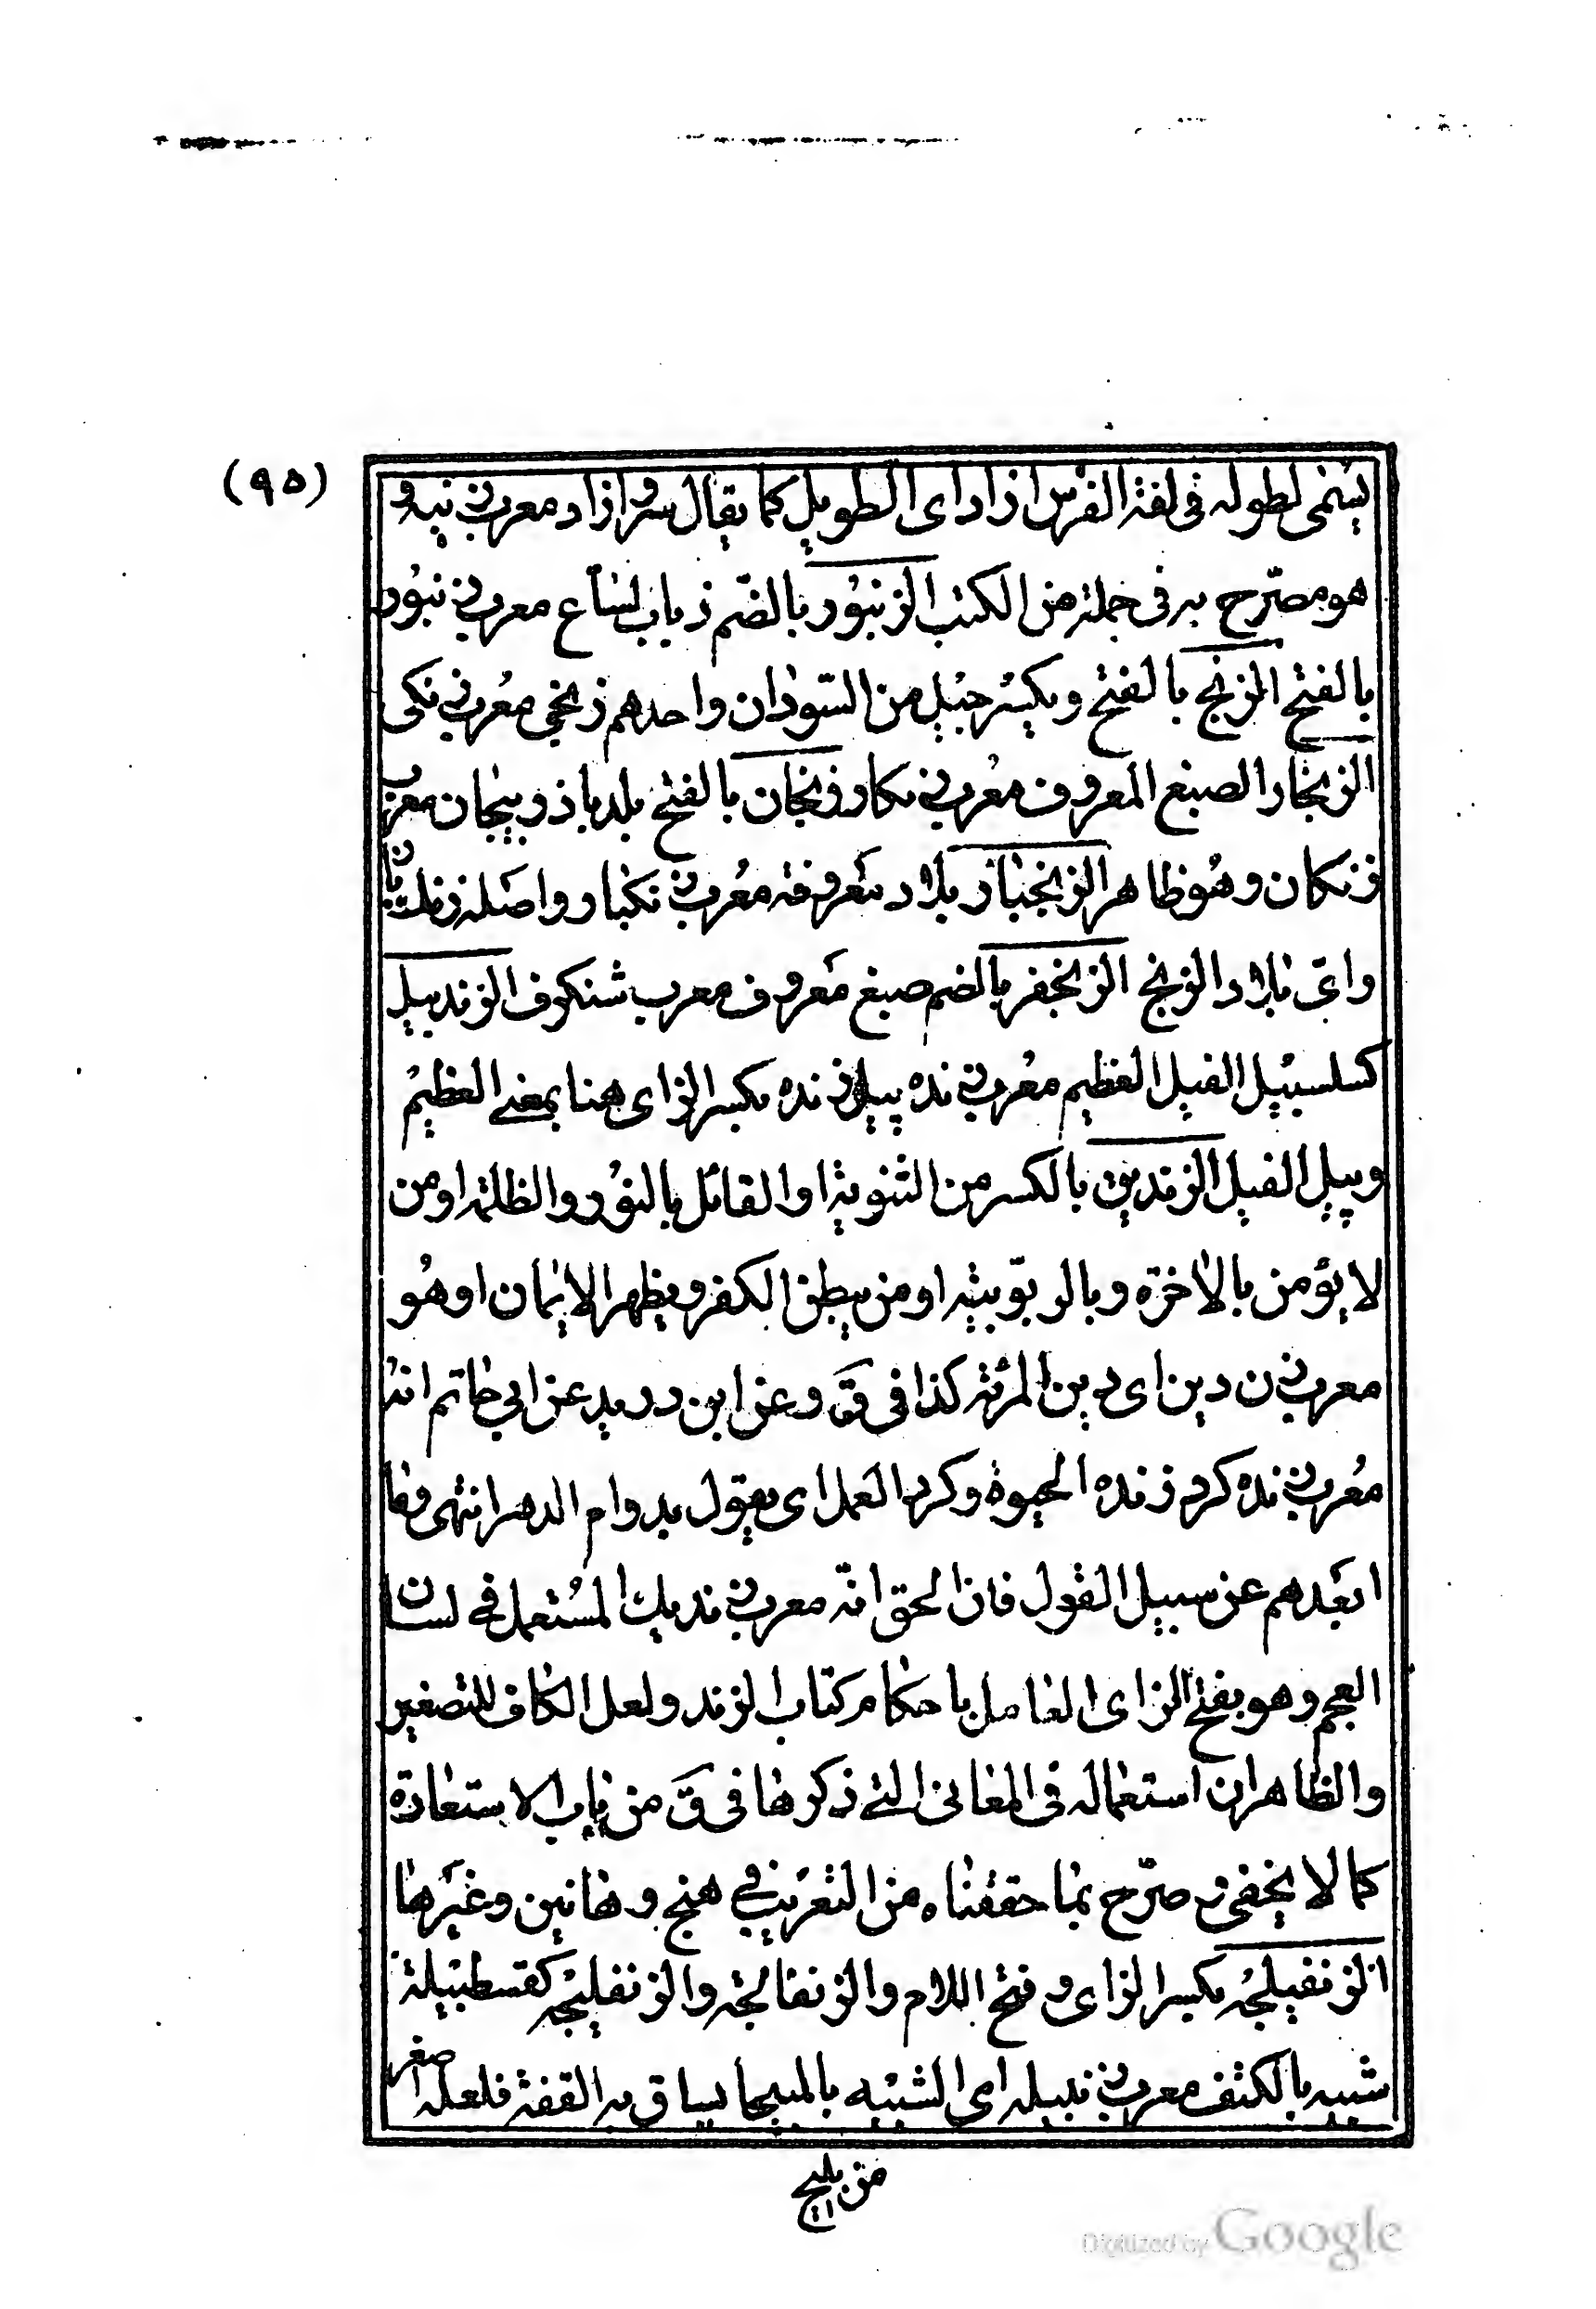 (٩٥)
يسمى لطوله فى لغة الفرس ازاد اى الطويل كما يقال سرو ازاد معرب زنبه و
هو مصرّح به فى جملة من الكتب الزنبور بالضم ذباب لساع معرب زنبور
بالفتح الزنج بالفتح ويكسر جيل من السودان واحدهم زنجى معرب زنكى
الزنجار الصبغ المعروف معرب زنكار زنجان بالفتح بلد باذربيجان معرب
زنكان وهو ظاهر الزنجبار بلاد معروفة معرب زنكبار واصله زنك بار
واى بلاد الزنج الزنجفر بالضم صبغ معروف معرب شنكرف الزندبيل
كسلسبيل الفيل العظيم معرب زنده پيل زنده بكسر الزاى هنا بمعنى العظيم
وپيل الفيل الزنديق بالكسر من الثنوية او القائل بالنور والظلمة او من
لا يؤمن بالاخرة وبالربوبية او من يبطن الكفر ويظهر الايمان او هو
معرب زن دين اى دين المرئة كذا فى ق وعن ابن دريد عن ابي حاتم انه
معرب زنده كرد زنده الحيوة وكرد العمل اى يقول بدوام الدهر انتهى وما
ابعدهم عن سبيل القول فان الحق انه معرب زنديك المستعمل فى لسان
العجم وهو بفتح الزاى العامل باحكام كتاب الزند ولعل الكاف للتصغير
والظاهر ان استعماله فى المعانى التى ذكرها فى ق من باب الاستعارة
كما لا يخفى و صرّح بما حققناه من التعريب فى هنج و هانين وغيرها
الزنفيلجه بكسر الزاى و فتح اللام والزنفالجه والزنفليجه كقسطبيلة
شبيه بالكنف معرب زنبيله اى الشبيه بالز يساق به القفة فلعله اصغر
من بليج
Digitized by Google